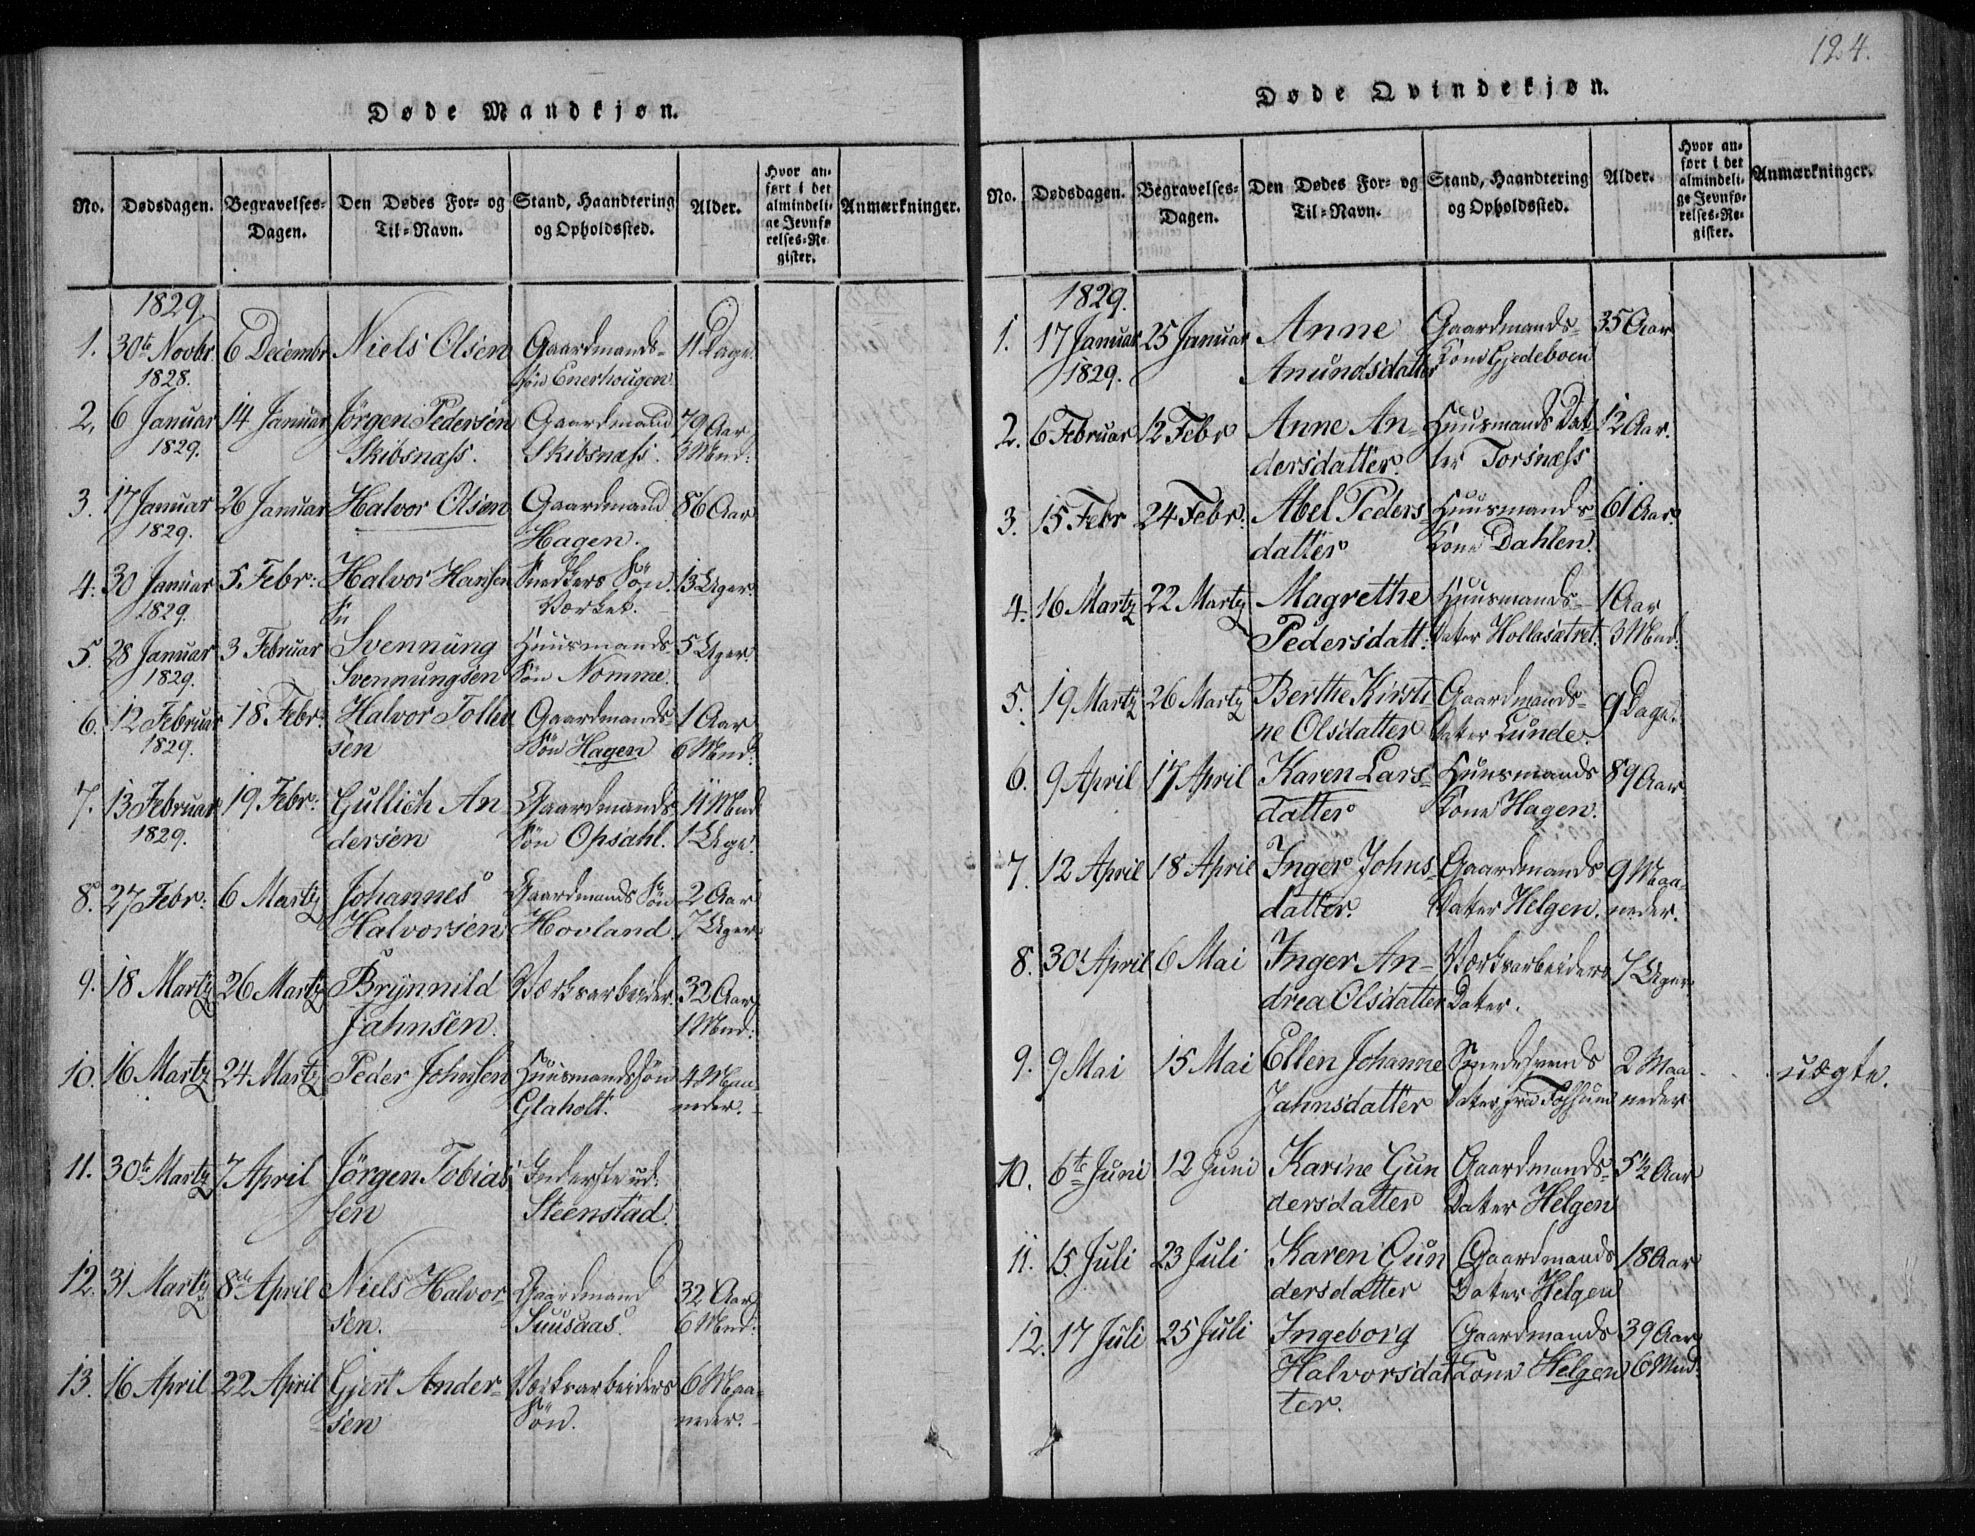 Døde Mandkjøn.
No. Dødsdagen. Begravelses-Dagen. Den Dødes For- og Til-Navn. Stand, Haandtering og Opholdssted. Alder. Hvor anført i det almindelige Jevnførelses-Register. Anmærkninger.
1829.
1. 30te Novbr. 6 Decembr Niels Olsen Gaardmands- 11 Dage.
1828. søn Enerhougen
2. 6 Januar 14 Januar Jörgen Pedersen Gaardmand 79 Aar
1829. Skibsnass. Skibsnæss. 3 Mnd:
3. 17 Januar 26 Januar Halvor Olsen Gaardmand 86 Aar
1829. Hagen.
4. 30 Januar 5. Febr: Halvor Hansen Snedkers Sön 13 Uger
1829. Værket.
5. 28 Januar 3 Februar Svennung Huusmands 5 Uger.
1829. Svennungsen Sön Nomme.
6. 12 Februar 18 Febr: Halvor Tolleu Gaardmands 1 Aar
1829. sen Sön Hagen 6 Mnd:
7. 13 Februar 19 Febr: Gullich An Gaardmands 11 Mnd
1829. dersen Sön Opsahl. 1 Uge.
8. 27 Febr: 6 Martz Johannes Gaardmands Sön 2 Aar
Halvorsen Hovland. 7 Uger.
9. 18 Martz 26 Martz Brynnild Værksarbeider 32 Aar
Jahnsen. 1 Mnd:
10. 16 Martz 24 Martz Peder Johnsen Huusmandssön 4 Maa
Glaholt. neder.
11. 30te Martz 7 April Jörgen Tobias Inderste ud.
sen Steenstad.
12. 31 Martz 8de April Niels Halvor- Gaardmand 32 Aar
sen. Suusaas. 6 Mnd:
13. 16 April 22 April Gjert Ander- Værksarbeiders 6 Maa-
sen Sön. neder.
124.
Døde Qvindekjøn.
No. Dødsdagen. Begravelses-Dagen. Den Dødes For- og Til-Navn. Stand, Haandtering og Opholdssted. Alder. Hvor anført i det almindelige Jevnførelses-Register. Anmærkninger.
1829.
1. 17 Januar 25 Januar Anne Gaardmands- 35 Aar
1829. Anundsdatter Kone Gjedeboen
2. 6 Februar 12 Febr Anne An- Huusmands Dat 12 Aar.
dersdatter. ter Torsnæss
3. 15 Febr 24 Febr: Abel Peders Huusmands- 61 Aar.
datter Kone Dahlen.
4. 16 Martz 22 Martz Magrethe Huusmands- 1 Aar
Pedersdatt. Dater Hollasætret. 3 Mnd:
5. 19 Martz 26 Martz Berthe Kirsti Gaardmands- 9 Dage.
ne Olsdatter Dater Lunde.
6. 9 April 17 April Karen Lars- Huusmands 89 Aar.
datter Kone Hagen.
7. 12 April 18 April Inger Johns- Gaardmands 9 Maa-
datter. Dater Helgen. neder.
8. 30te April 6 Mai Inger An- Værksarbeiders 7 Uger.
drea Olsdatter Dater.
9. 9 Mai 15 Mai Ellen Johanne Smedesvends 2 Maa uægte.
Jahnsdatter Dater fra Fossum neder
10. 6te Juni 12 Juni Karine Gun Gaardmands- 5 1/2 Aar
dersdatter Dater Helgen
11. 15. Juli 23 Juli Karen Gun Gaardmands 18 Aar
dersdatter Dater Helgen
12. 17 Juli 25 Juli Ingeborg Gaardmands 39 Aar
Halvorsdat Kone Helgen 6 Mnd:
ter.